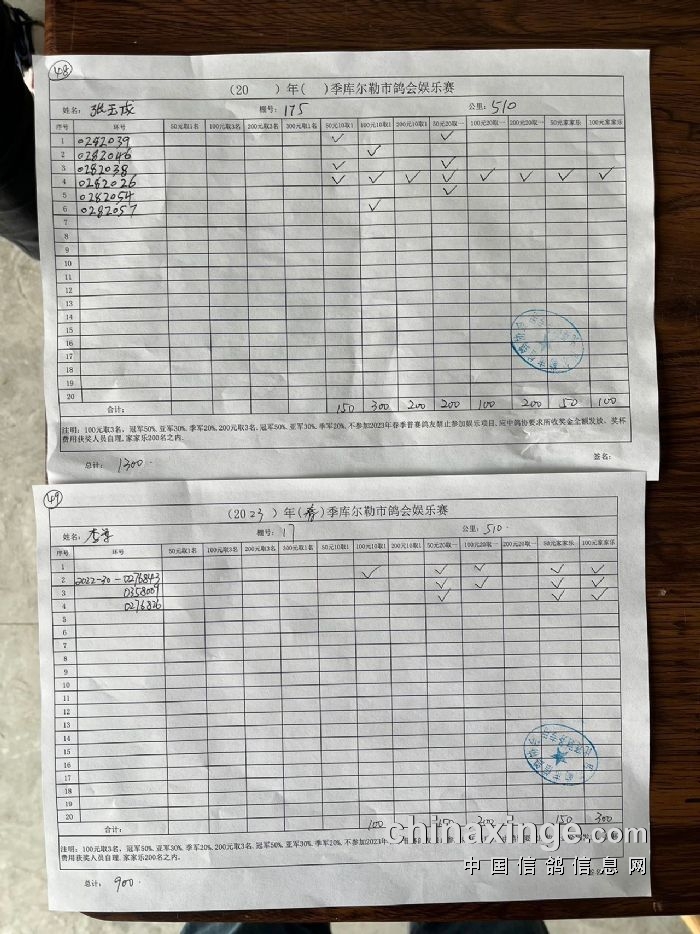 48
(20　　) 年(　　)季库尔勒市鸽会娱乐赛
姓名: 张玉成 棚号: 175 公里: 510
序号 环号 50元取1名 100元取3名 200元取3名 300元取1名 50元10取1 100元10取1 200元10取1 50元20取一 100元20取一 200元20取一 50元家家乐 100元家家乐
1 0282039 ✓ ✓
2 0282046 ✓
3 0282038 ✓ ✓
4 0282026 ✓ ✓ ✓ ✓ ✓ ✓ ✓ ✓
5 0282054 ✓
6 0282057 ✓
7
8
9
10
11
12
13
14
15
16
17
18
19
20
合计: 150 300 200 200 100 200 50 100
注明: 100元取3名, 冠军50%, 亚军30%, 季军20%, 200元取3名, 冠军50%, 亚军30%, 季军20%, 不参加2023年春季普赛鸽友禁止参加娱乐项目, 应中鸽协要求所收奖金全额发放, 奖杯
费用获奖人员自理, 家家乐200名之内.
总计: 1300. 签名:
49
(2023) 年(春)季库尔勒市鸽会娱乐赛
姓名: 棚号: 17 公里: 510.
序号 环号 50元取1名 100元取3名 200元取3名 300元取1名 50元10取1 100元10取1 200元10取1 50元20取一 100元20取一 200元20取一 50元家家乐 100元家家乐
1
2 2022-30-0276843 ✓ ✓ ✓ ✓ ✓
3 0358009 ✓ ✓ ✓ ✓
4 0276826 ✓ ✓ ✓
5
6
7
8
9
10
11
12
13
14
15
16
17
18
19
20
合计: 100 150 200 150 300
注明: 100元取3名, 冠军50%, 亚军30%, 季军20%, 200元取3名, 冠军50%, 亚军30%, 季军20%, 不参加2023年
费用获奖人员自理, 家家乐200名之内.
总计: 900.
chinaxinge.com
中国信鸽信息网